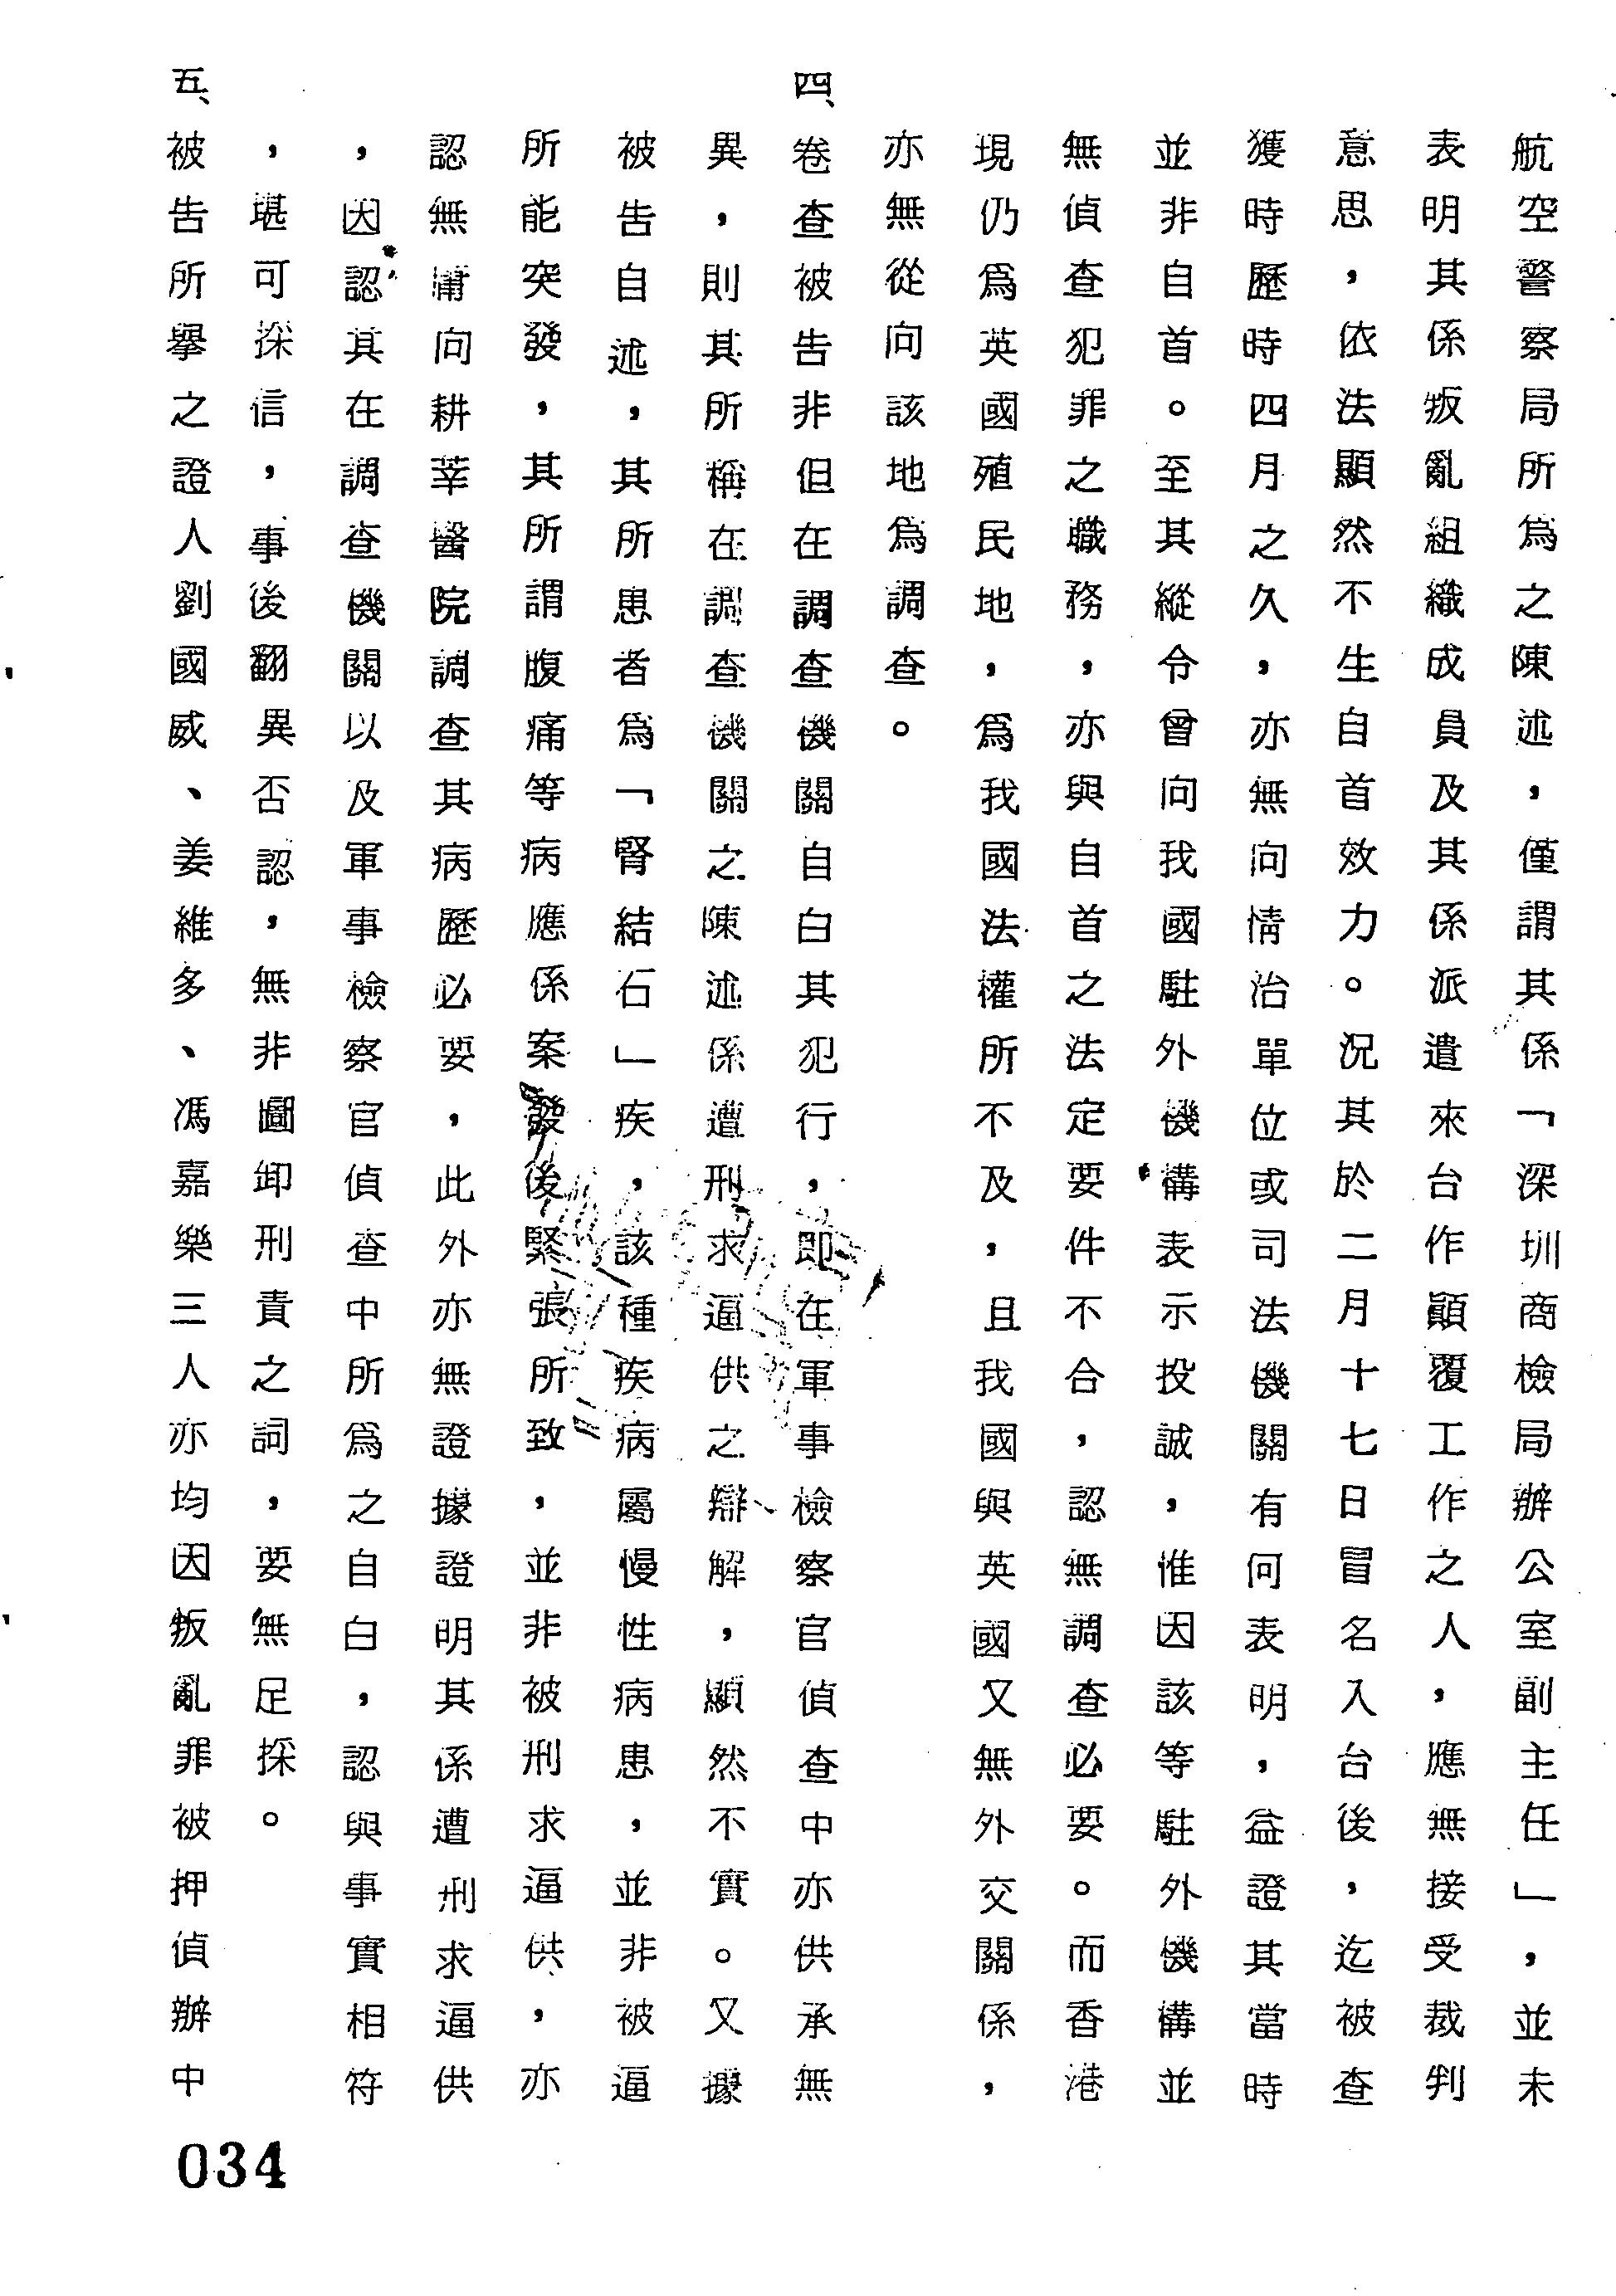 航空警察局所爲之陳述，僅謂其係「深圳商檢局辦公室副主任」，並未
表明其係叛亂組織成員及其係派遣來台作顚覆工作之人，應無接受裁判
意思，依法顯然不生自首效力。況其於二月十七日冒名入台後，迄被查
獲時歷時四月之久，亦無向情治單位或司法機關有何表明，益證其當時
並非自首。至其縱令曾向我國駐外機構表示投誠，惟因該等駐外機構並
無偵查犯罪之職務，亦與自首之法定要件不合，認無調查必要。而香港
現仍爲英國殖民地，爲我國法權所不及，且我國與英國又無外交關係，
亦無從向該地爲調查。
四、卷查被告非但在調查機關自白其犯行，即在軍事檢察官偵查中亦供承無
異，則其所稱在調查機關之陳述係遭刑求逼供之辯解，顯然不實。又據
被告自述，其所患者爲「腎結石」疾，該種疾病屬慢性病患，並非被逼
所能突發，其所謂腹痛等病應係案發後緊張所致，並非被刑求逼供，亦
認無庸向耕莘醫院調查其病歷必要，此外亦無證據證明其係遭刑求逼供
，因認其在調查機關以及軍事檢察官偵查中所爲之自白，認與事實相符
，堪可採信，事後翻異否認，無非圖卸刑責之詞，要無足採。
五、被告所擧之證人劉國威、姜維多、馮嘉樂三人亦均因叛亂罪被押偵辦中
034